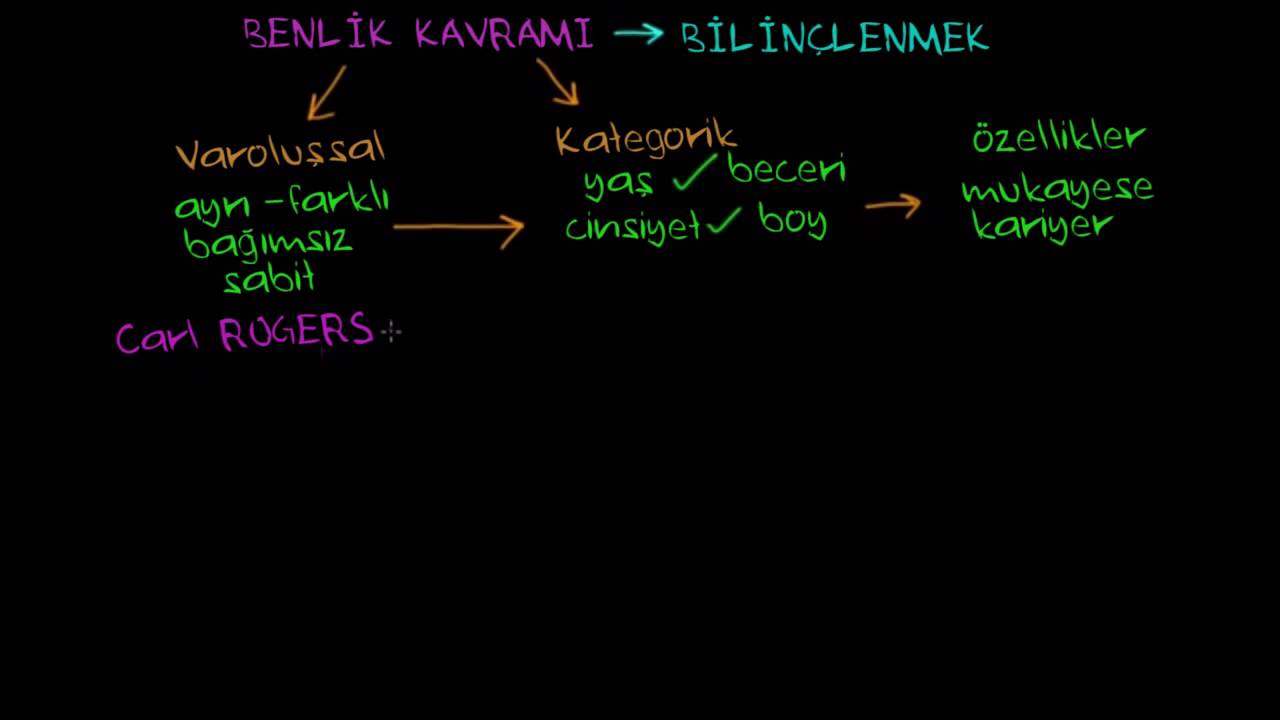 BENLİK KAVRAMI → BİLİNÇLENMEK
Varoluşsal
ayrı - farklı
bağımsız
sabit
Kategorik
yaş ✓ beceri
cinsiyet ✓ boy
özellikler
mukayese
kariyer
Carl ROGERS